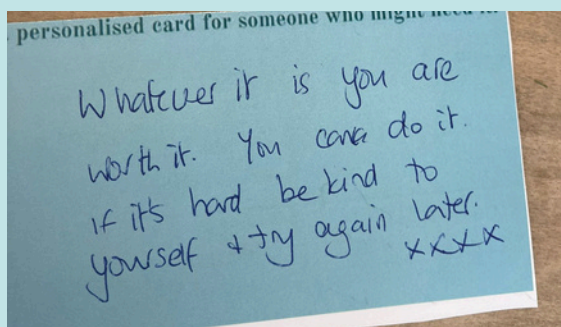 personalised card for someone who might need it
Whatever it is you are
worth it. You cana do it.
if it's hard be kind to
yourself + try again later.
xxxx